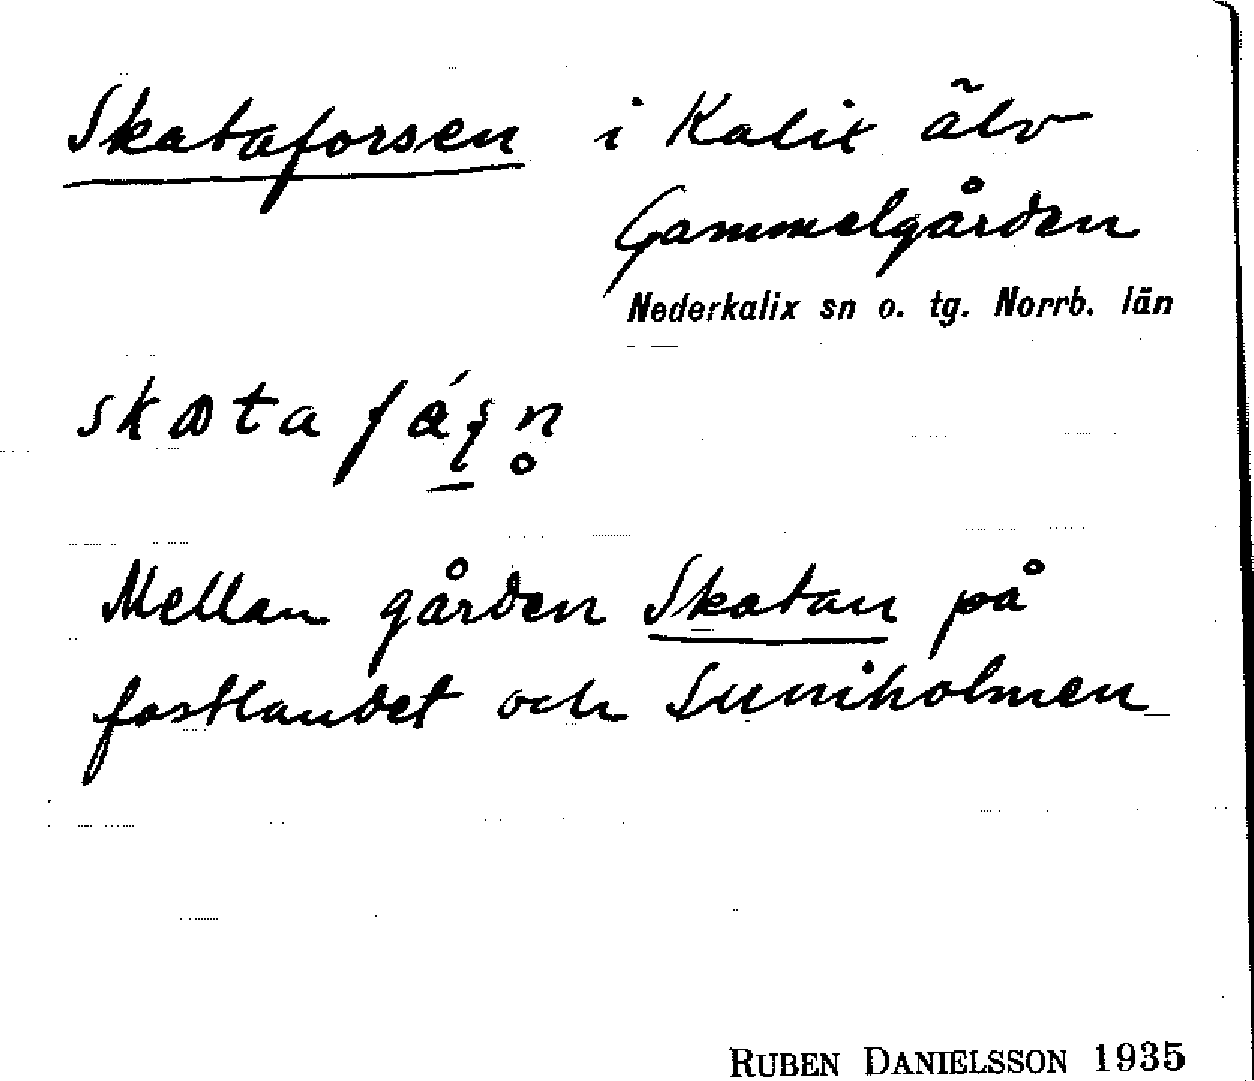 Skataforsen i Kalix älv
Gammelgården
Nederkalix sn o. tg. Norrb. län
Mellan gården Skatan på
fastlandet och
RUBEN DANIELSSON 1935